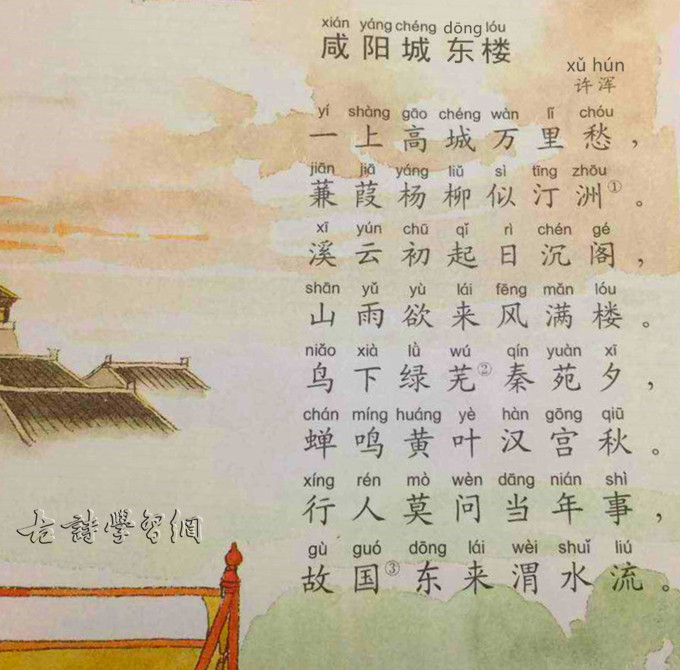 xián yáng chéng dōng lóu
咸阳城东楼
xǔ hún
许浑
yí shàng gāo chéng wàn lǐ chóu
一上高城万里愁，
jiān jiā yáng liǔ sì tīng zhōu
蒹葭杨柳似汀洲①。
xī yún chū qǐ rì chén gé
溪云初起日沉阁，
shān yǔ yù lái fēng mǎn lóu
山雨欲来风满楼。
niǎo xià lǜ wú qín yuàn xī
鸟下绿芜②秦苑夕，
chán míng huáng yè hàn gōng qiū
蝉鸣黄叶汉宫秋。
xíng rén mò wèn dāng nián shì
行人莫问当年事，
gù guó dōng lái wèi shuǐ liú
故国③东来渭水流。
古詩學習網